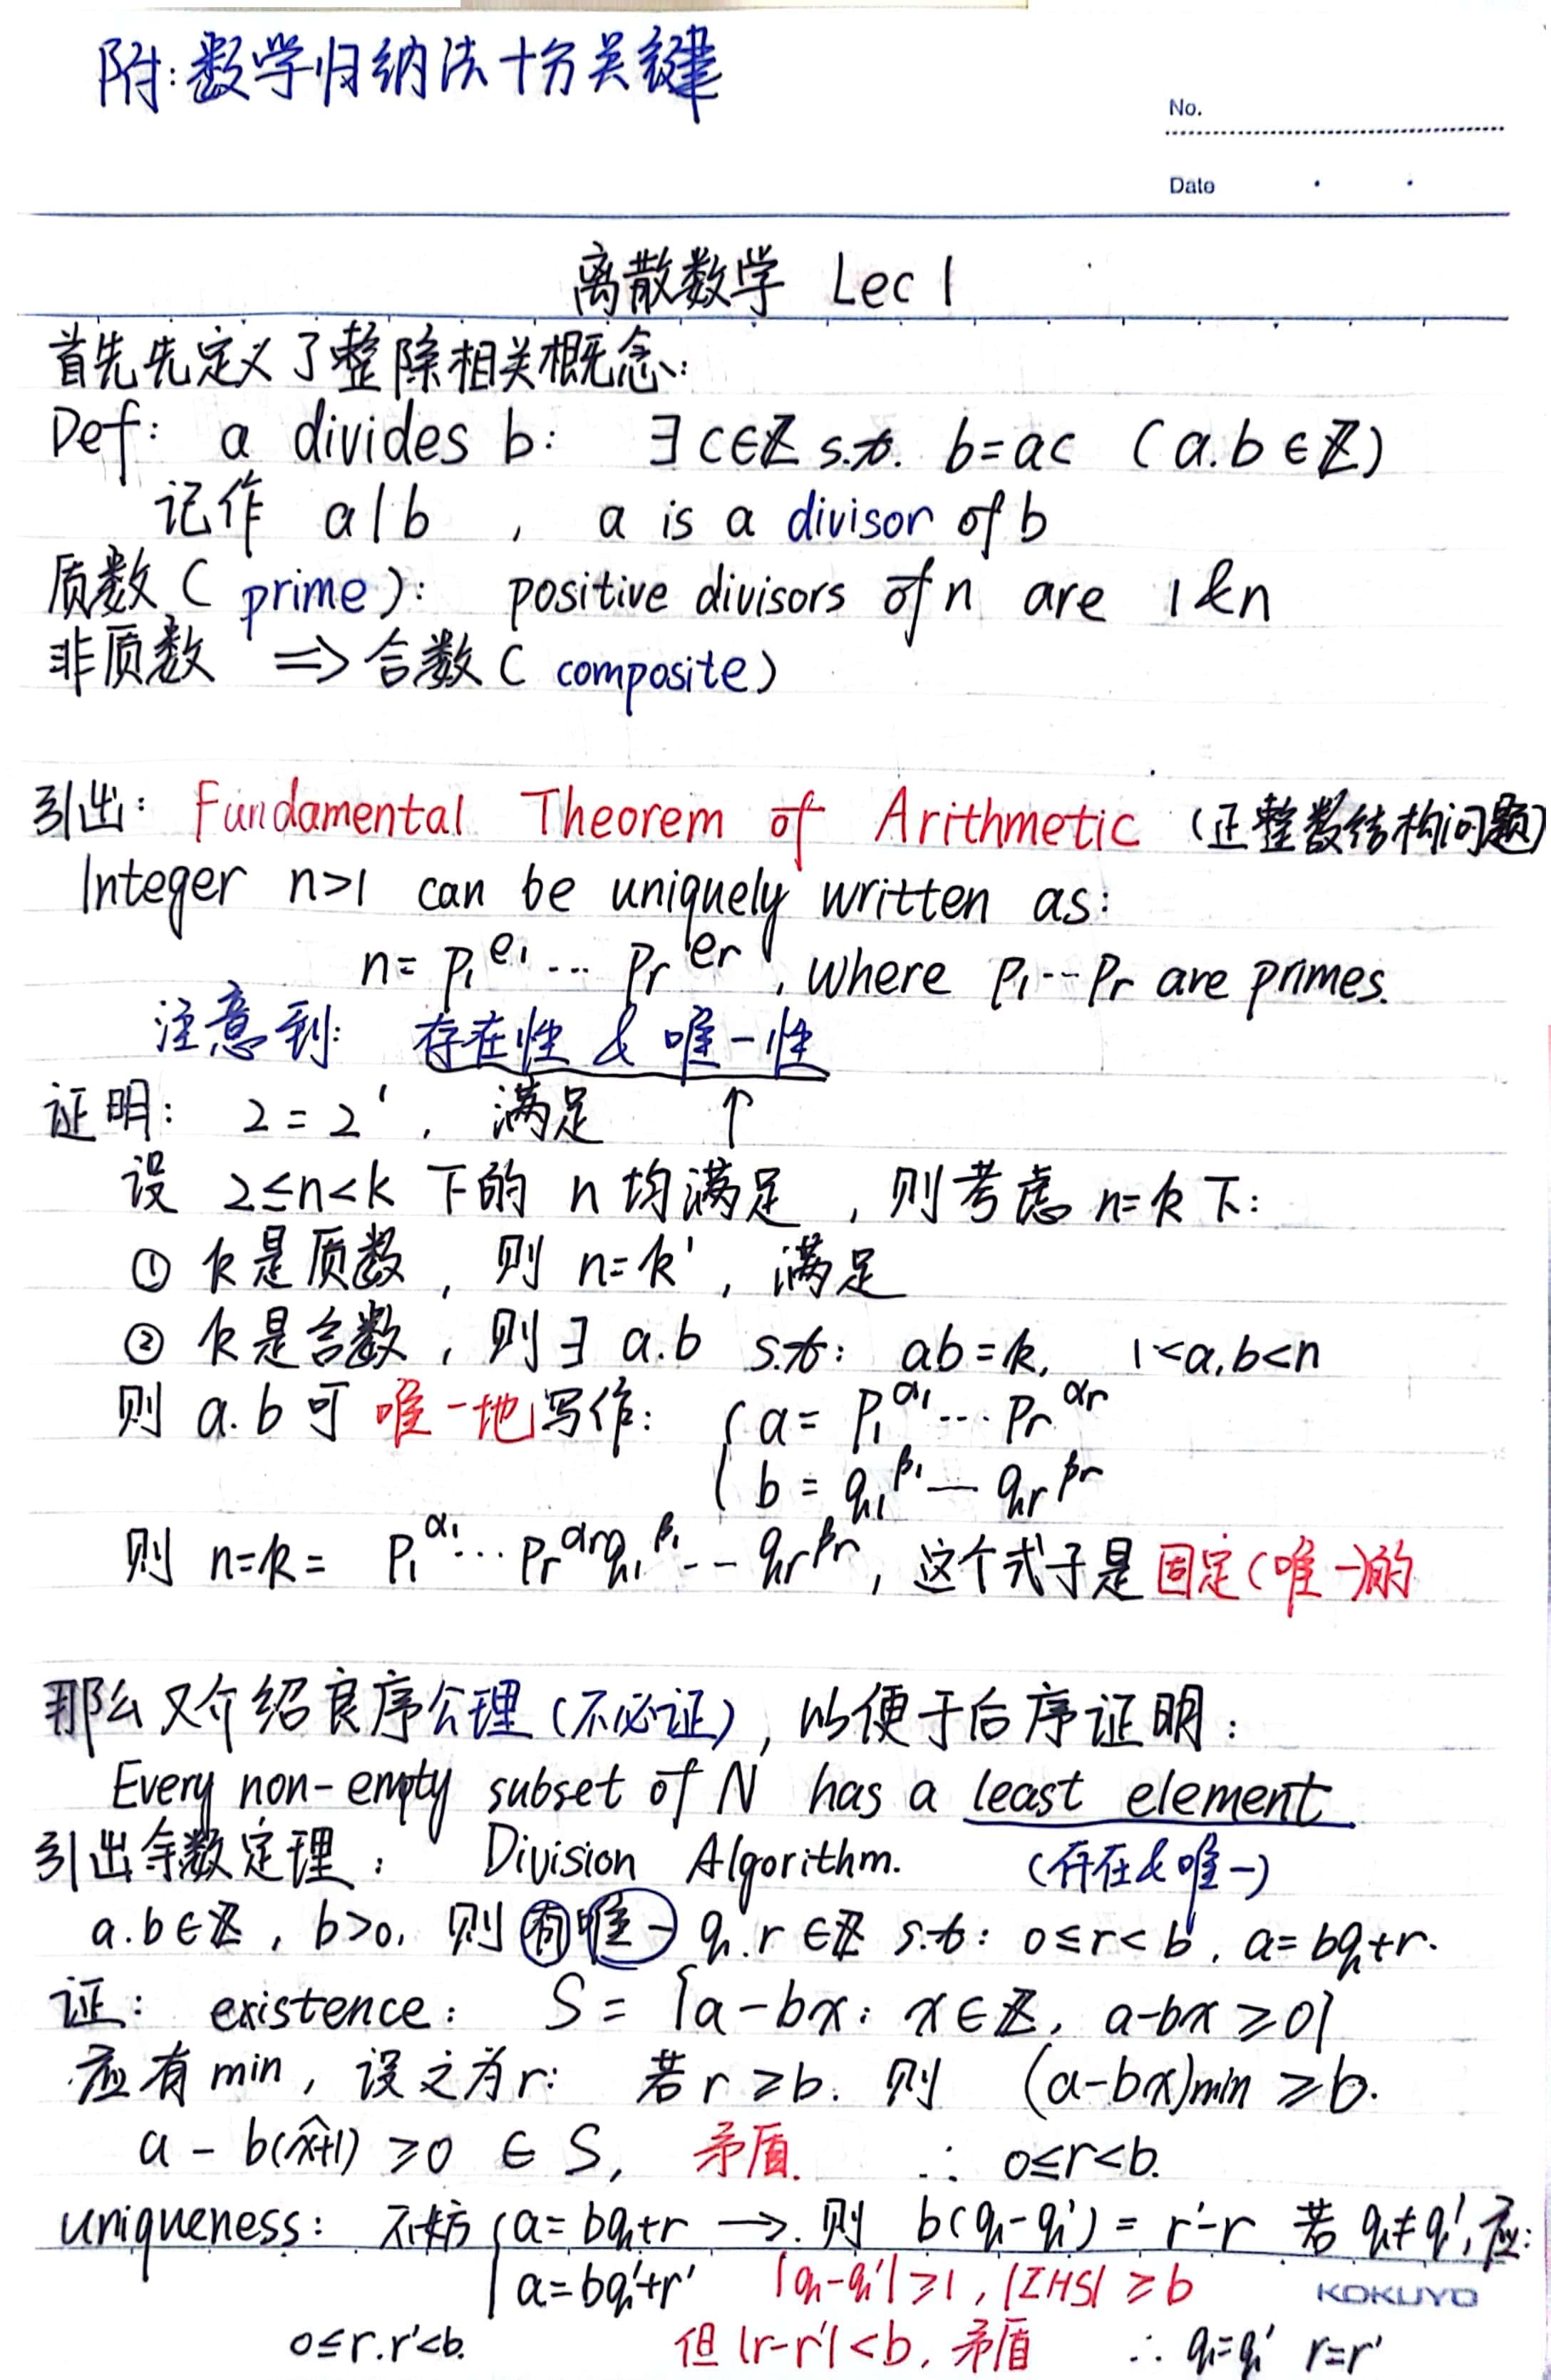 附:数学归纳法十分关键
No.
Date
离散数学 Lec 1
首先先定义了整除相关概念:
Def: a divides b: ∃ c∈ℤ s.t. b=ac (a.b∈ℤ)
记作 a|b , a is a divisor of b
质数( prime): positive divisors of n are 1&n
非质数 ⇒ 合数( composite)
引出: Fundamental Theorem of Arithmetic (正整数结构问题)
Integer n>1 can be uniquely written as:
n= p₁^e₁ ... pᵣ^eᵣ , where p₁...pᵣ are primes.
注意到: 存在性 & 唯一性
证明: 2=2¹, 满足 ↑
设 2≤n<k 下的 n 均满足, 则考虑 n=k 下:
① k是质数, 则 n=k¹, 满足
② k是合数, 则∃ a.b s.t: ab=k, 1<a,b<n
则 a.b 可唯一地写作: { a= p₁^α₁ ... pᵣ^αᵣ
b = q₁^β₁ — qᵣ^βᵣ
则 n=k= p₁^α₁...pᵣ^αᵣq₁^β₁...qᵣ^βᵣ, 这个式子是固定(唯一)的
那么又介绍良序公理(不必证), 以便于后序证明:
Every non-empty subset of N has a least element
引出余数定理: Division Algorithm. (存在&唯一)
a.b∈ℤ, b>0, 则有唯一 q.r∈ℤ s.t: 0≤r<b, a=bq+r.
证: existence: S= {a-bx: x∈ℤ, a-bx≥0}
应有min, 设之为r: 若r≥b. 则 (a-bx)min ≥b.
a - b(x̂+1) ≥0 ∈ S, 矛盾. ∴ 0≤r<b.
uniqueness: 不妨 { a=bq+r → 则 b(q-q') = r'-r 若 q≠q', 应:
a=bq'+r' |q-q'|≥1, |LHS| ≥b
KOKUYO
0≤r.r'<b. 但 |r-r'|<b, 矛盾 ∴ q=q' r=r'